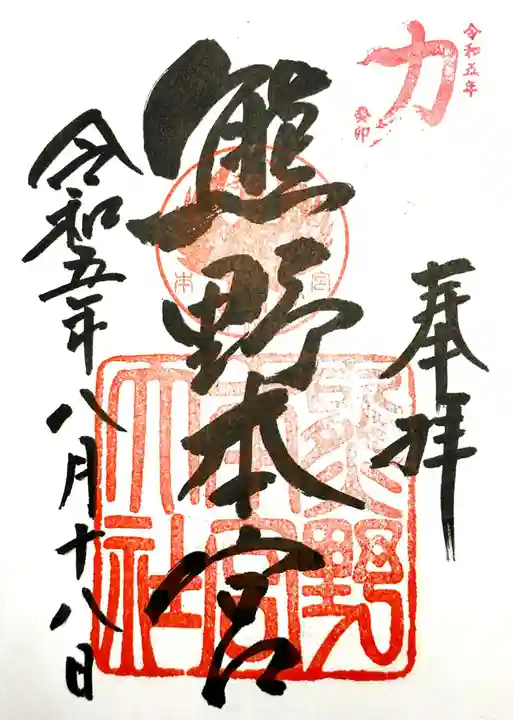 令和五年
力
癸卯
奉拝
熊野本宮
本宮
熊野
本宮
大社
令和五年八月十八日